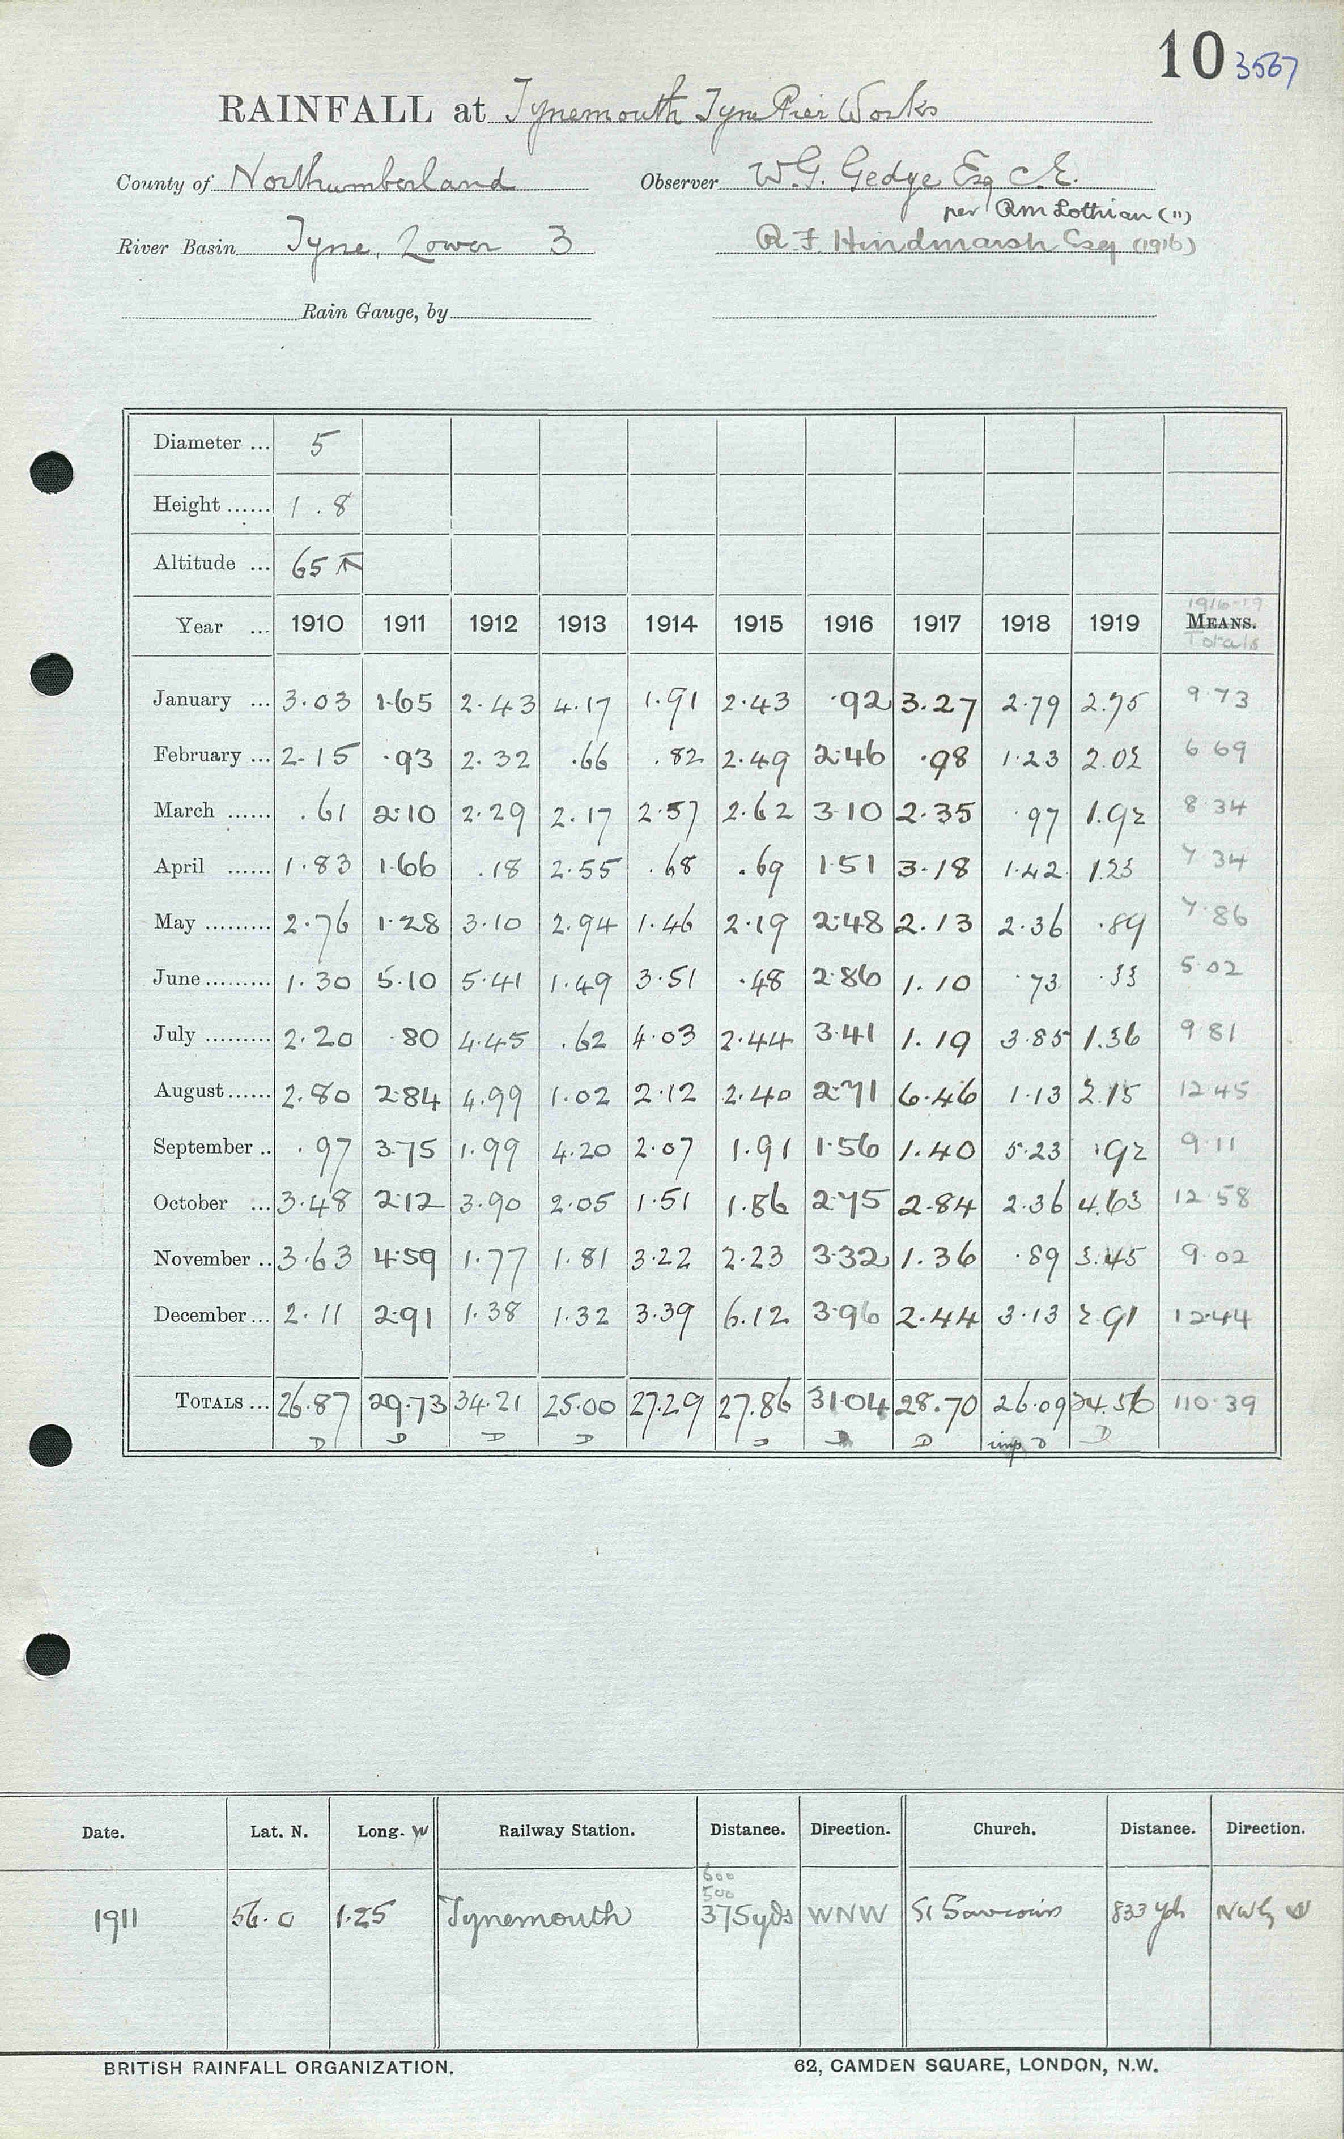 10 3567
RAINFALL at Tynemouth Tyne Pier Works
County of Northumberland Observer W.G. Gedye Esq C.E.
per R M Lothian (")
River Basin Tyne, Lower 3 R. F. Hindmarsh Esq (1916)
Rain Gauge, by
Diameter ... 5
Height ...... 1 . 8
Altitude ... 65
1916-19
Year ... 1910 1911 1912 1913 1914 1915 1916 1917 1918 1919 MEANS.
Totals
January ... 3.03 1.65 2.43 4.17 1.91 2.43 .92 3.27 2.79 2.75 9.73
February ... 2.15 .93 2.32 .66 .82 2.49 2.46 .98 1.23 2.02 6 69
March ...... .61 2.10 2.29 2.17 2.57 2.62 3.10 2.35 .97 1.92 8.34
April ...... 1.83 1.66 .18 2.55 .68 .69 1.51 3.18 1.42 1.23 7 34
May ......... 2.76 1.28 3.10 2.94 1.46 2.19 2.48 2.13 2.36 .89 7.86
June ......... 1.30 5.10 5.41 1.49 3.51 .48 2.86 1.10 .73 .33 5.02
July ......... 2.20 .80 4.45 .62 4.03 2.44 3.41 1.19 3.85 1.36 9 81
August ...... 2.80 2.84 4.99 1.02 2.12 2.40 2.71 6.46 1.13 2.15 12.45
September .. .97 3.75 1.99 4.20 2.07 1.91 1.56 1.40 5.23 .92 9.11
October ... 3.48 2.12 3.90 2.05 1.51 1.86 2.75 2.84 2.36 4.63 12.58
November .. 3.63 4.59 1.77 1.81 3.22 2.23 3.32 1.36 .89 3.45 9.02
December ... 2.11 2.91 1.38 1.32 3.39 6.12 3.96 2.44 3.13 2.91 12.44
TOTALS ... 26.87 29.73 34.21 25.00 27.29 27.86 31.04 28.70 26.09 24.56 110.39
D D D D D D D imp D D
Date. Lat. N. Long. W Railway Station. Distance. Direction. Church. Distance. Direction.
600
500
1911 56.0 1.25 Tynemouth 375 yds WNW St Saviours 833 yds NW by W
BRITISH RAINFALL ORGANIZATION. 62, CAMDEN SQUARE, LONDON, N.W.